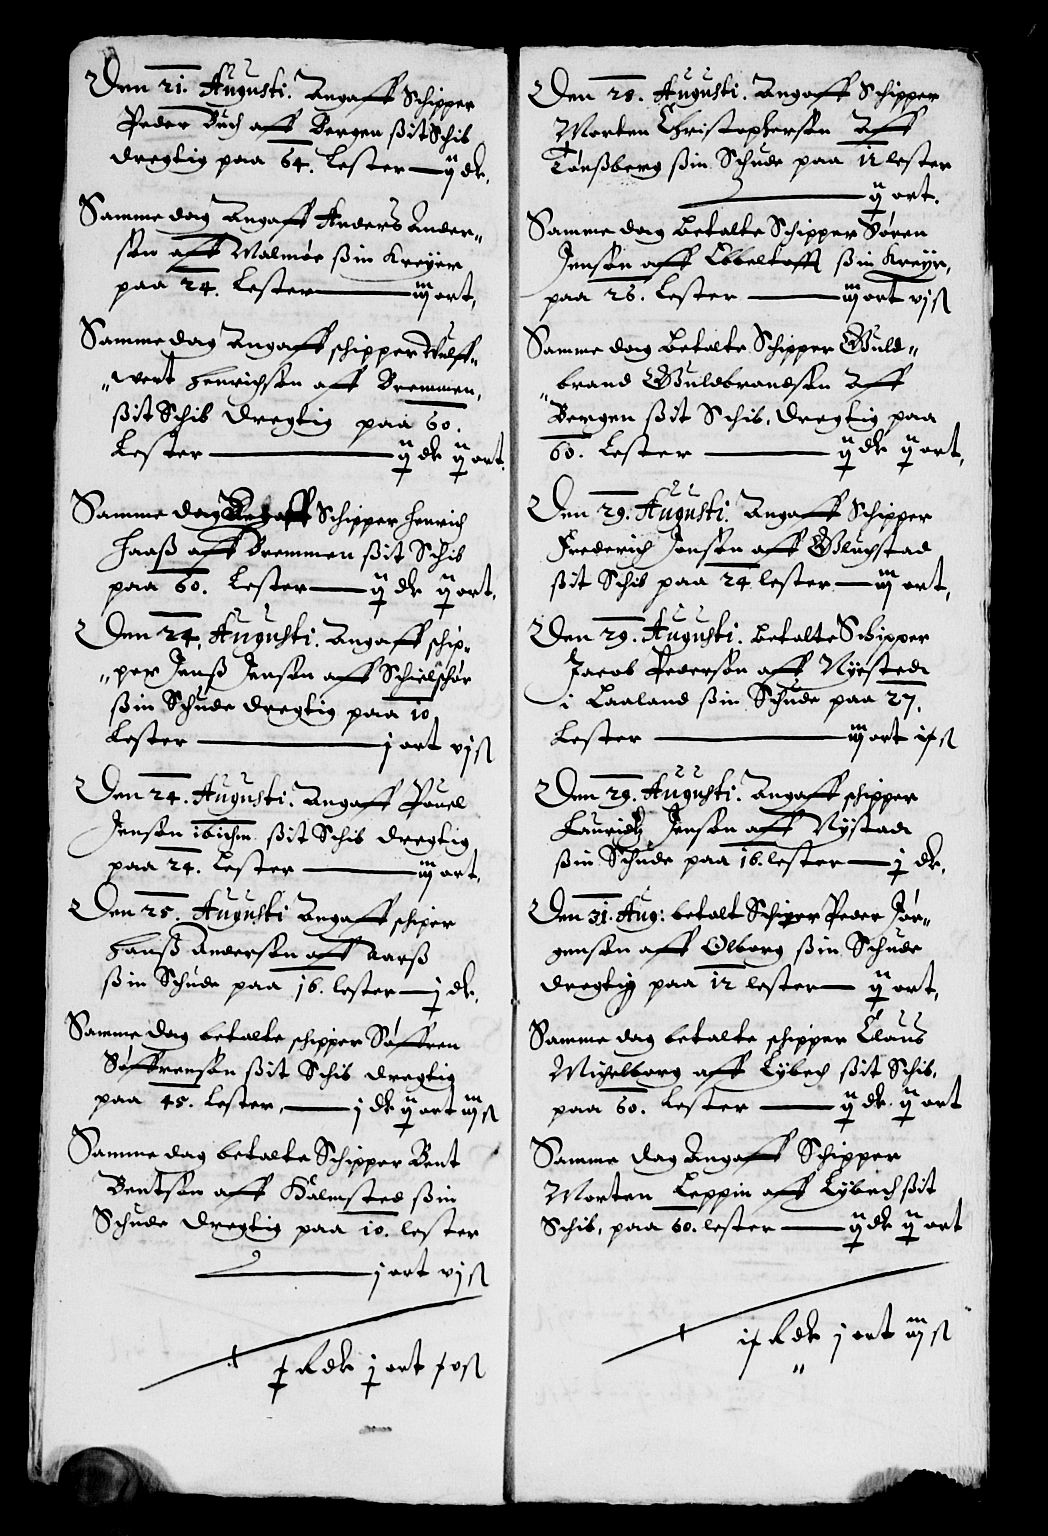 Den 21. Augusti. Angaff Schipper
Peder Buch aff Bergen ßit Schib
dregtig paa 64. Lester — ij dr.
Samme dag Angaff Anders Ander„
sen aff Malmøe ßin Kreyer
paa 24. Lester — iij ort,
Samme dag Angaff schipper Wulff„
„wert Henrichsen aff Bremmen,
ßit Schib dregtig paa 60.
Lester — ij dr ij ort.
Samme dag Angaff Schipper Henrich
Haaß aff Bremmen ßit Schib
paa 60. Lester — ij dr ij ort,
Den 24. Augusti. Angaff schip„
„per Jenß Jensen aff Schielschør
ßin Schude dregtig paa 10
Lester — j ort vj ß
Den 24. Augusti. Angaff Pouel
Jensen ibidem ßit Schib dregtig
paa 24. Lester — iij ort,
Den 25. Augusti Angaff schiper
Hanß Andersen aff Aarß
ßin Schude paa 16. lester — j dr,
Samme dag betalte schipper Søffren
Søffrensen ßit Schib dregtig
paa 45. Lester, — j dr ij ort iij ß
Samme dag betalte Schipper Bent
Bentsen aff Halmsted ßin
Schude dregtig paa 10. lester
— j ort vj ß
R dr j ort ß
Den 28. Augusti. Angaff Schipper
Morten Christophersen Aff
Tønßberg ßin Schude paa 12 lester
— ij ort.
Samme dag Betalte Schipper Søren
Jensen aff Ebbeltofft ßin Kreyr,
paa 26. Lester — iij ort vj ß
Samme dag Betalte Schipper Guld„
„brand Guldbrandsen Aff
Bergen ßit Schib, dregtig paa
60. Lester — ij dr ij ort,
Den 29. Augusti. Angaff Schipper
Frederich Jensen aff Gluchstad
ßit Schib paa 24 lester — iij ort,
Den 29. Augusti. betalte Schipper
Jacob Pedersen aff Nyested
i Laaland ßin Schude paa 27.
Lester — iij ort ix ß
Den 29. Augusti. Angaff schipper
Lauridz Jensen aff Nystad
ßin Schude paa 16. lester — j dr.
Den 31. Aug: betalt Schiper Peder Jør„
gensen aff Olborg ßin Schude
dregtig paa 12 lester — ij ort,
Samme dag betalte schipper Claus
Michelborg aff Lybech ßit Schib,
paa 60. Lester — ij dr. ij ort
Samme dag Angaff Schipper
Morten Leppin aff Lybech ßit
Schib, paa 60. lester — ij dr ij ort
R dr j ort iij ß